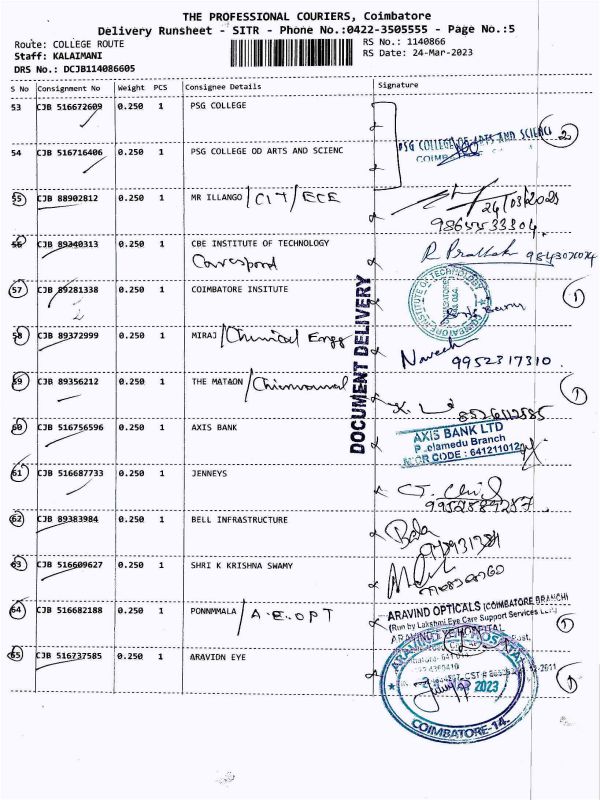 THE PROFESSIONAL COURIERS, Coimbatore
Delivery Runsheet - SITR - Phone No.:0422-3505555 - Page No.:5
Route: COLLEGE ROUTE
RS No.: 1140866
Staff: KALAIMANI
RS Date: 24-Mar-2023
DRS No.: DCJB114086605
S No Consignment No Weight PCS Consignee Details Signature
53 CJB 516672609 0.250 1 PSG COLLEGE
PSG COLLEGE OF ARTS AND SCIENC 2
54 CJB 516716406 0.250 1 PSG COLLEGE OD ARTS AND SCIENC
55 CJB 88902812 0.250 1 MR ILLANGO /CIT/ECE
24/03/2023
9865533304
56 CJB 89340313 0.250 1 CBE INSTITUTE OF TECHNOLOGY
57 CJB 89281338 0.250 1 COIMBATORE INSITUTE 1
58 CJB 89372999 0.250 1 MIRAJ /Chemical Engg
Naveen
9952317310
59 CJB 89356212 0.250 1 THE MATAON 1
DOCUMENT DELIVERY
60 CJB 516756596 0.250 1 AXIS BANK
AXIS BANK LTD
Peelamedu Branch
MICR CODE : 641211012
61 CJB 516687733 0.250 1 JENNEYS
62 CJB 89383984 0.250 1 BELL INFRASTRUCTURE
Bala
63 CJB 516609627 0.250 1 SHRI K KRISHNA SWAMY
64 CJB 516682188 0.250 1 PONNMMALA /A.E.OPT
ARAVIND OPTICALS (COIMBATORE BRANCH)
(Run by Lakshmi Eye Care Support Services
ARAVIND EYE HOSPITAL
1
65 CJB 516737585 0.250 1 ARAVION EYE
ARAVIND EYE HOSPITAL
2023
COIMBATORE-14.
1